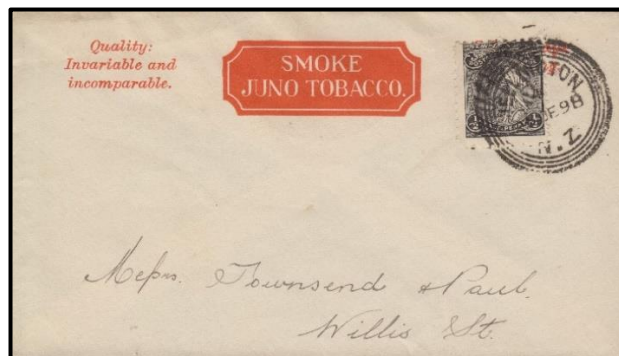 Quality:
Invariable and
incomparable.
SMOKE
JUNO TOBACCO.
N.Z
Messrs. Townsend & Paul.
Willis St.